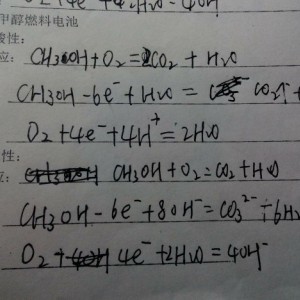 O₂+4e⁻+2H₂O=4OH⁻
甲醇燃料电池
酸性:
应: CH3OH+O₂=CO₂+H₂O
CH3OH-6e⁻+H₂O= CO₂↑+
O₂+4e⁻+4H⁺=2H₂O
性:
应: CH3OH+O₂=CO₂+H₂O
CH3OH-6e⁻+8OH⁻=CO₃²⁻+6H₂O
O₂+4e⁻+2H₂O=4OH⁻